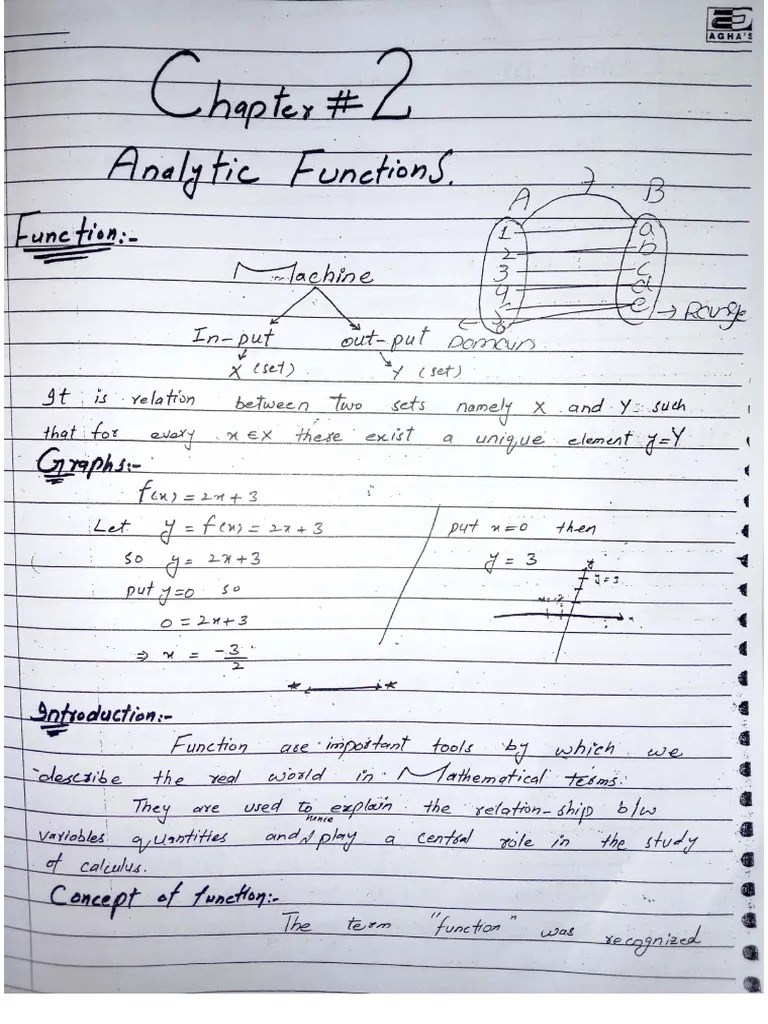 AGHA'S
Chapter # 2
Analytic Functions.
Function:-
A B
1 a
2 b
3 c
4 d
e
→ Range
Domain
Machine
In-put out-put
X (set) Y (set)
It is relation between two sets namely X and Y such
that for every x ∈ X there exist a unique element y=Y
Graphs:-
f(x) = 2x + 3
Let y = f(x) = 2x + 3
so y = 2x + 3
put y=0 so
0 = 2x+3
⇒ x = -3/2
put x=0 then
y = 3
y = 3
Introduction:-
Function are important tools by which we
describe the real world in Mathematical terms.
They are used to explain the relation-ship b/w
variables quantities and hence play a central role in the study
of calculus.
Concept of function:-
The term "function" was recognized